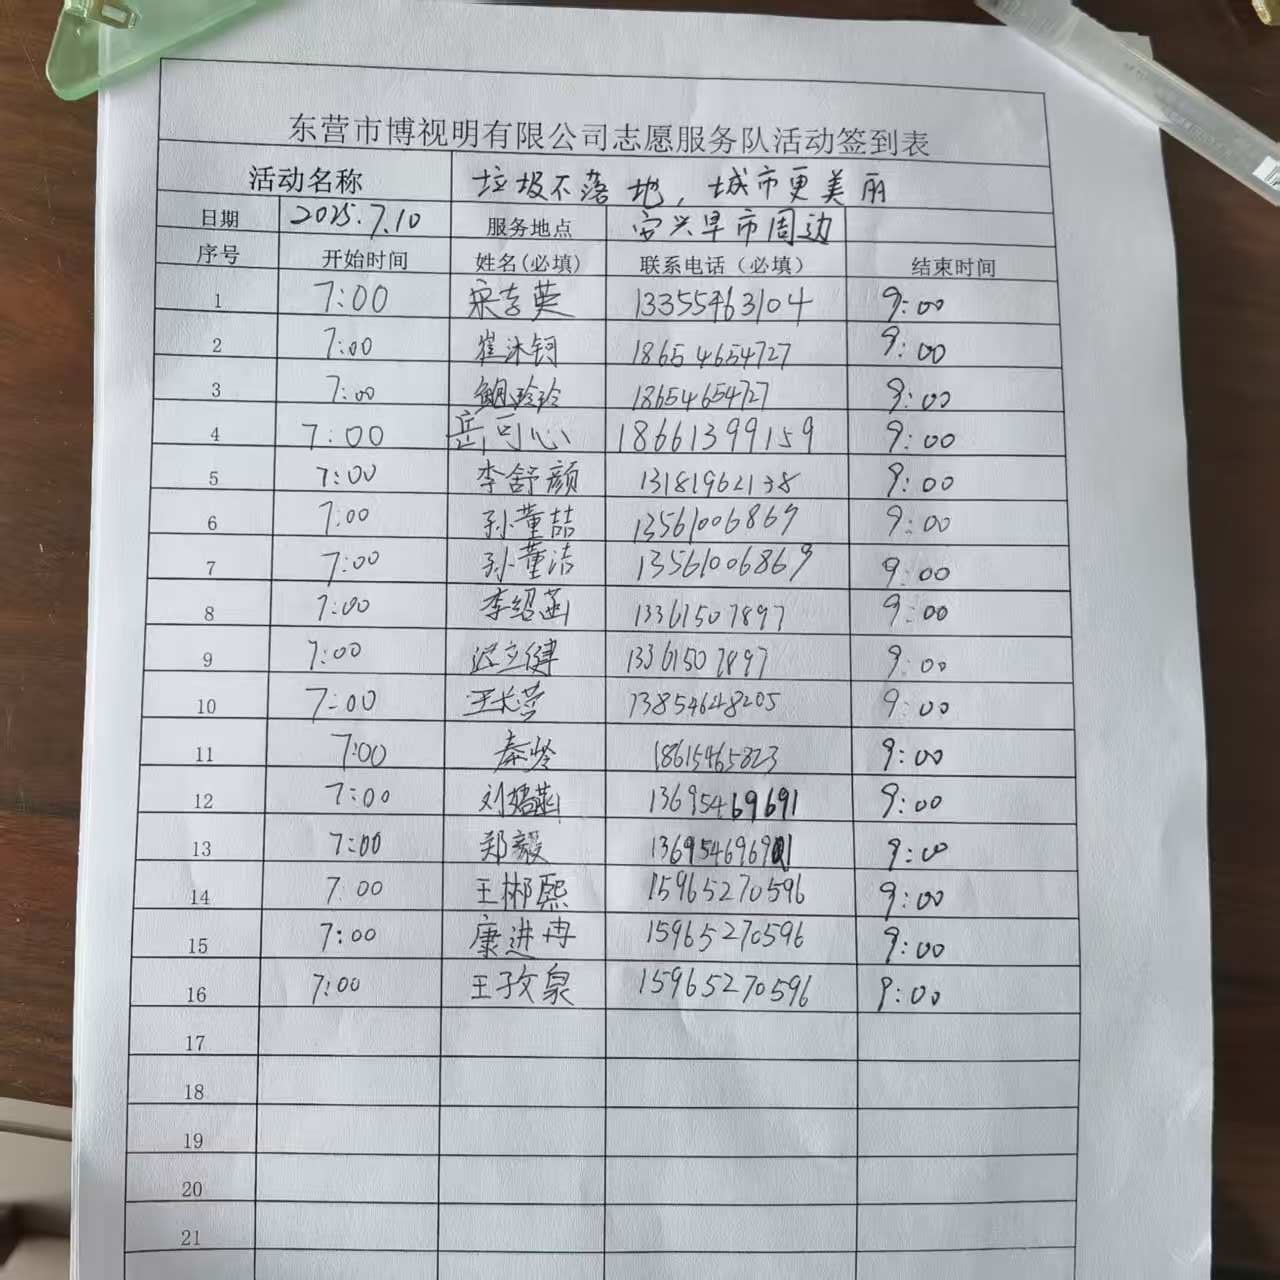 东营市博视明有限公司志愿服务队活动签到表
活动名称 垃圾不落地，城市更美丽
日期 2025.7.10 服务地点 安兴早市周边
序号 开始时间 姓名(必填) 联系电话（必填） 结束时间
1 7:00 宋秀英 13355463104 9:00
2 7:00 崔沐钶 18654654727 9:00
3 7:00 鲍玲玲 18654654727 9:00
4 7:00 岳可心 18661399159 9:00
5 7:00 李舒颜 13181962138 9:00
6 7:00 孙董喆 13561006869 9:00
7 7:00 孙董洁 13561006869 9:00
8 7:00 李绍菡 13361507897 9:00
9 7:00 迟立健 13361507897 9:00
10 7:00 王长英 13854648205 9:00
11 7:00 秦玲 18615465823 9:00
12 7:00 刘嫣菡 13695469691 9:00
13 7:00 郑毅 13695469691 9:00
14 7:00 王郴熙 15965270596 9:00
15 7:00 康进冉 15965270596 9:00
16 7:00 王孜泉 15965270596 9:00
17
18
19
20
21